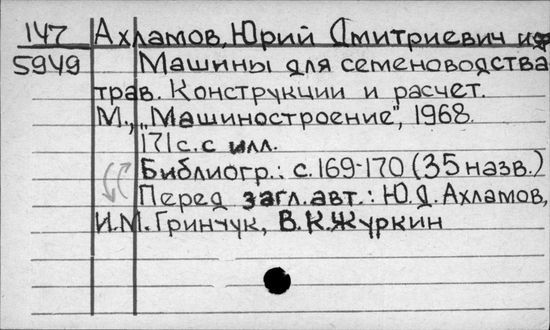 147 Ахламов, Юрий Дмитриевич и др
5949 Машины для семеноводства
трав. Конструкции и расчет.
М., „Машиностроение", 1968.
171 с. с илл.
Библиогр.: с. 169-170 (35 назв.)
Перед загл. авт.: Ю.Д. Ахламов,
И.М. Гринчук, В.К. Журкин